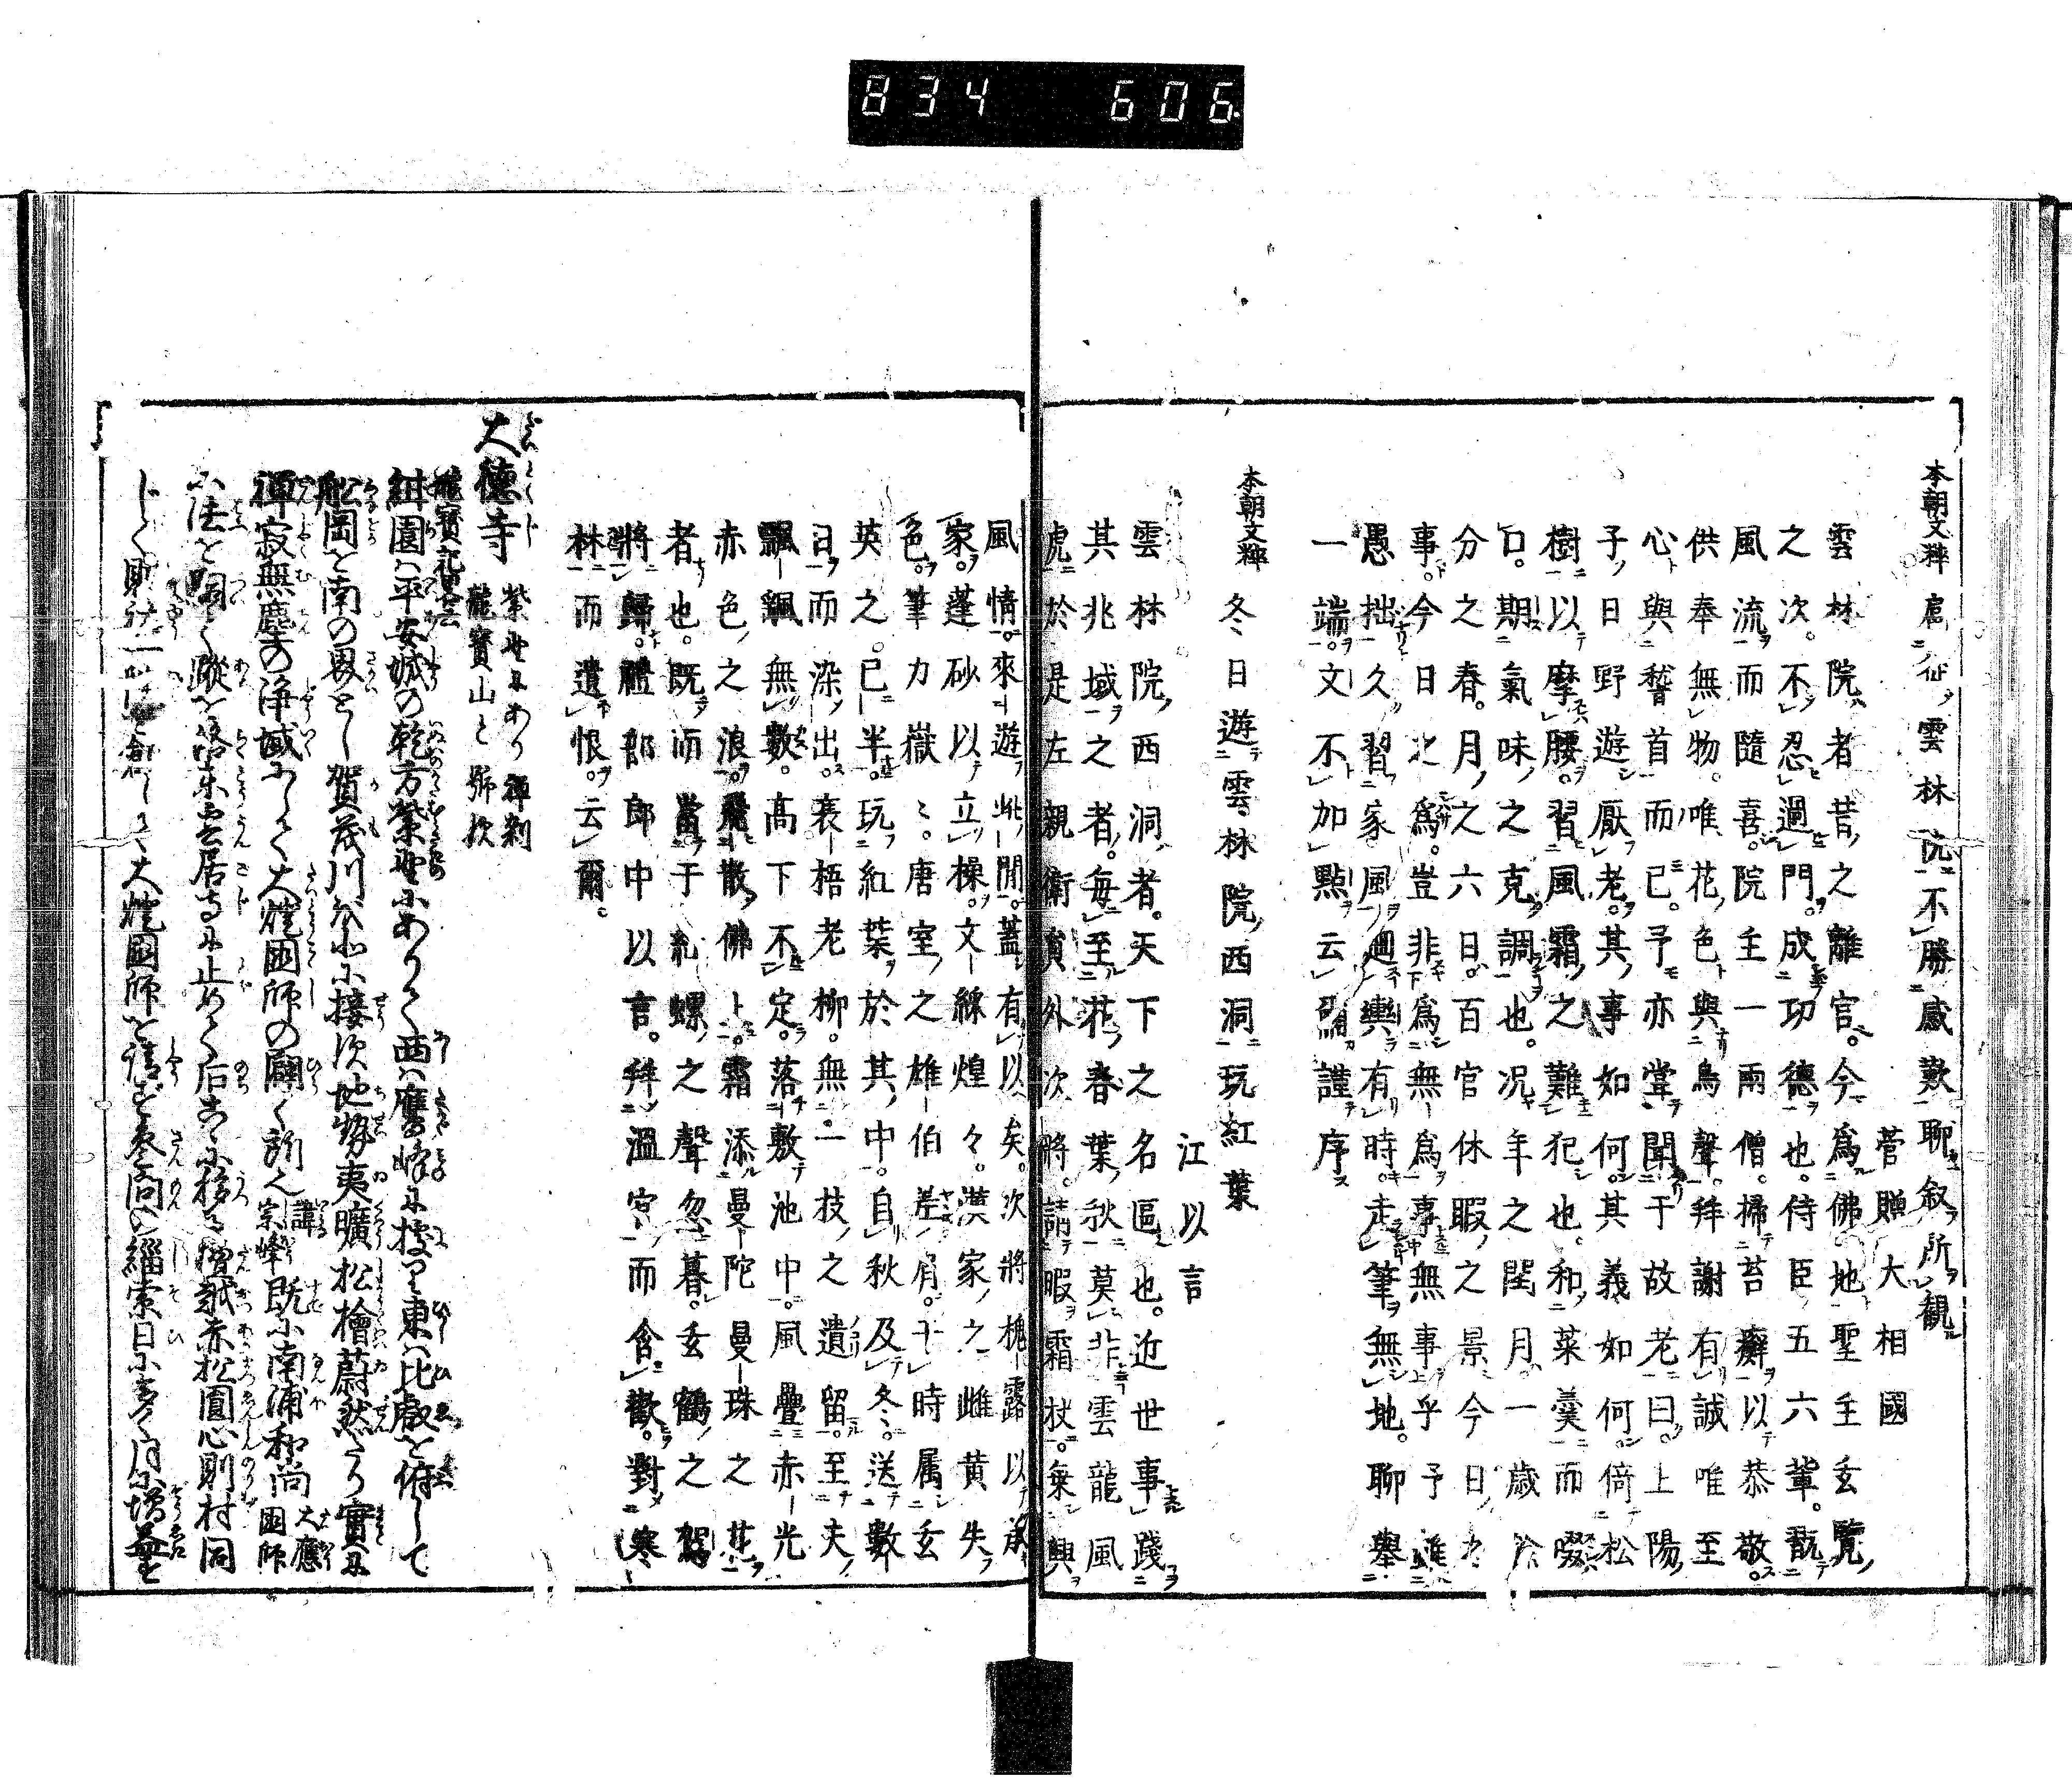 834 606
本朝文粹 扈從雲林院不勝感歎聊叙所觀
菅贈大相國
雲林院者昔之離宮今爲佛地聖主玄覽
之次不忍過門成功德也侍臣五六輩翫
風流而隨喜院主一兩僧掃苔癬以恭敬
供奉無物唯花色與鳥聲拜謝有誠唯至
心與稽首而已予亦嘗聞于故老曰上陽
子日野遊厭老其事如何其義如何倚松
樹以摩腰習風霜之難犯也和菜羹而啜
口期氣味之克調也况年之閏月一歲餘
分之春月之六日百官休暇之景今日之
事今日之爲豈非爲無爲事無事乎予雖
愚拙久習家風廻輿有時走筆無地聊舉
一端文不加點云爾謹序
本朝文粹 冬日遊雲林院西洞玩紅葉
江以言
雲林院西洞者天下之名區也近世事踐
其兆域之者每至花春葉秋莫非雲龍風
虎於是左親衛員外次將請暇霜杖乘興
風情來遊此閒蓋有以矣次將槐露以承
家蓬砂以立操文綵煌々漢家之雌黄失
色筆力嶽々唐室之雄伯差肩于時属玄
英之已半玩紅葉於其中自秋及冬送數
日而染出衰梧老柳無一枝之遺留至夫
飄颻無數高下不定落敷池中風疊赤光
赤色之浪飛散佛上霜添曼陀曼珠之花
者也既而當于紀螺之聲忽暮玄鶴之駕
將歸體部郎中以言拜溫宮而含歡對寒
林而遺恨云爾
大德寺 紫野にあり禪刹龍寶山と號次
龍寶記畧云
紺園ハ平安城の乾方紫野にありて西ハ鷹峰に接し東ハ比叡を俯して
舩岡を南の界とし賀茂川公北に接次地勢夷曠松檜蔚然たり實に
禪寂無塵の淨域にして大燈國師の闢く所也諱宗峰既に南浦和尚大應國師
に法を嗣て蹤を洛東雲居寺に止めて后こゝに移る檀越赤松圓心則村同
じく財を一宇を創して大燈國師を請ず參問の緇素日に多く月に增益を